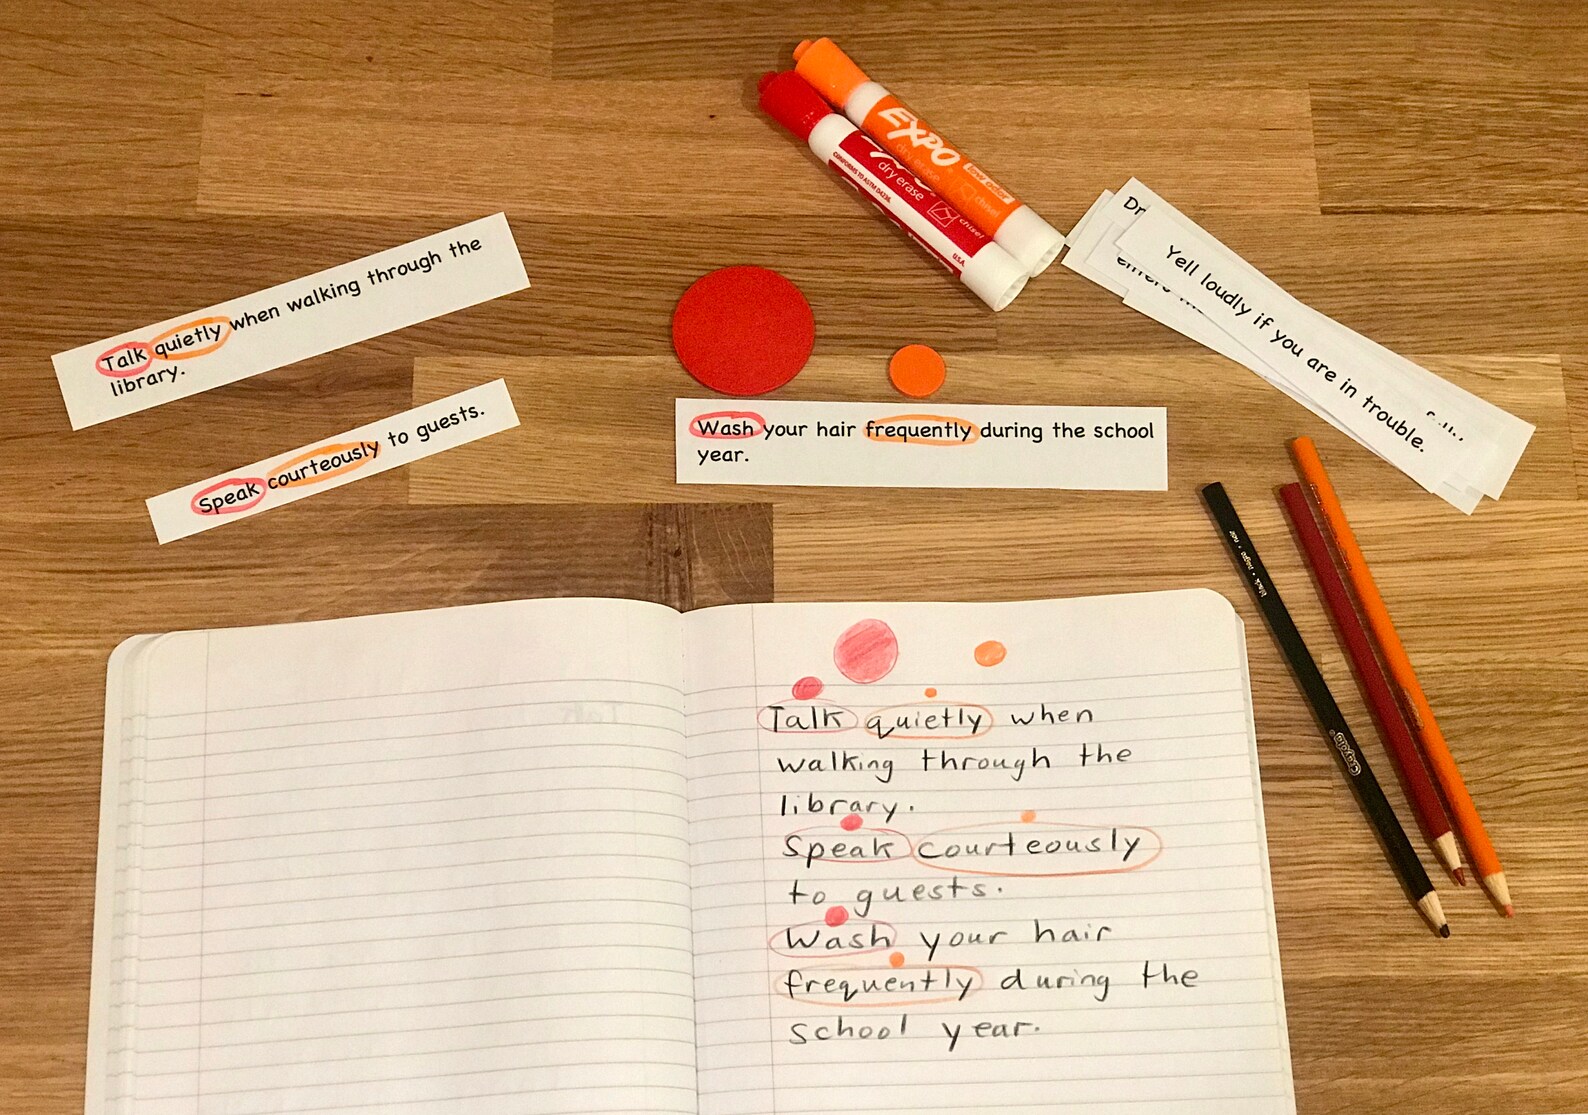 EXPO
dry erase
low odor
chisel
CONFORMS TO ASTM D4236
dry erase
chisel
USA
Talk quietly when walking through the
library.
Speak courteously to guests.
Wash your hair frequently during the school
year.
Dr
Yell loudly if you are in trouble.
black • negro • noir
Crayola
Talk quietly when
walking through the
library.
Speak courteously
to guests.
Wash your hair
frequently during the
school year.